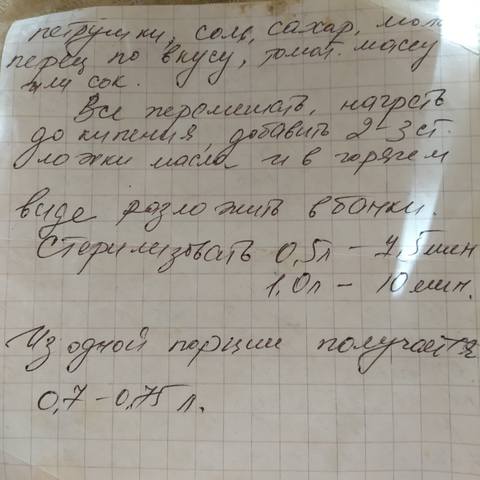 петрушки, соль, сахар, мол.
перец по вкусу, томат. массу
или сок.
Все перемешать, нагреть
до кипения, добавить 2-3 ст.
ложки масла и в горячем
виде разложить в банки.
Стерилизовать 0,5л - 7,5 мин
1,0л - 10 мин.
Из одной порции получается
0,7-0,75 л.